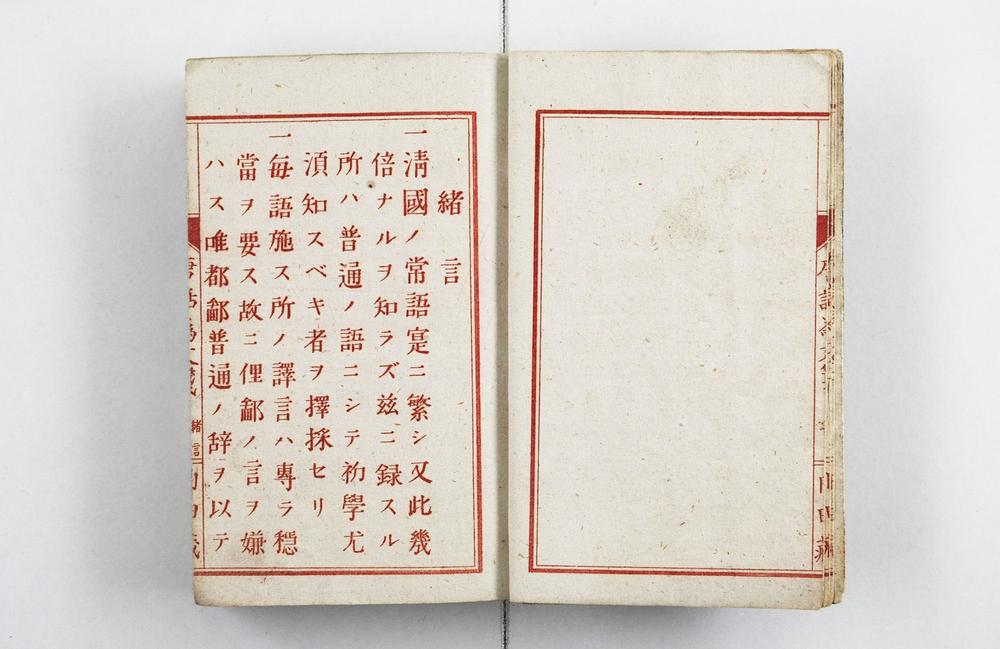 緒言
一清國ノ常語寔ニ繁シ又此幾
倍ナルヲ知ラズ茲ニ録スル
所ハ普通ノ語ニシテ初學尤
須知スベキ者ヲ擇採セリ
一毎語施ス所ノ譯言ハ專ラ穏
當ヲ要ス故ニ俚鄙ノ言ヲ嫌
ハス唯都鄙普通ノ辞ヲ以テ
緒言